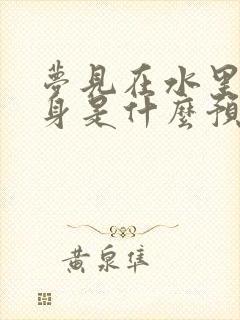 夢見在水里
身是什麼預
黄泉隼